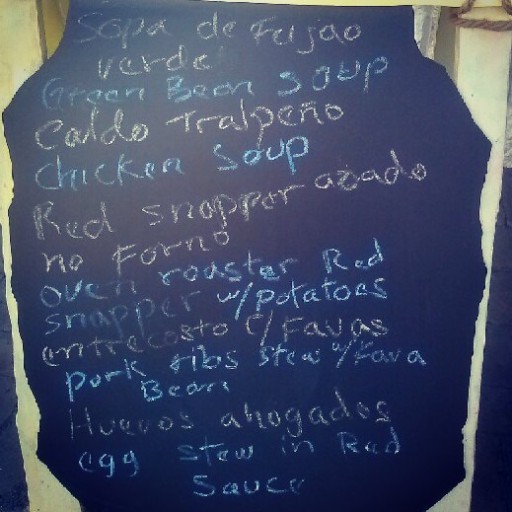 Sopa de Feijao
verde
Green Bean Soup
Caldo Tralpeño
Chicken Soup
Red snapper asado
no Forno
oven roaster Red
snapper w/potatoes
entrecosto c/Favas
pork ribs stew w/Fava
Bean
Huevos ahogados
egg stew in Red
Sauce